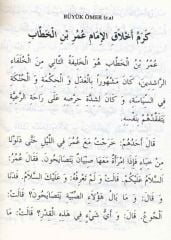 BÜYÜK ÖMER (r.a)
كَرَمُ أَخْلَاقِ الْإِمَامِ عُمَرَ بْنِ الْخَطَّابِ
عُمَرُ بْنُ الْخَطَّابِ هُوَ الْخَلِيفَةُ الثَّانِي مِنَ الْخُلَفَاءِ
الرَّاشِدِينَ، كَانَ مَشْهُورًا بِالْعَدْلِ وَ الْحِكْمَةِ وَ الْحُنْكَةِ
فِي السِّيَاسَةِ، وَ كَانَ لِشِدَّةِ حِرْصِهِ عَلَى رَاحَةِ الرَّعِيَّةِ
يَتَفَقَّدُهُمْ بِنَفْسِهِ.
قَالَ أَحَدُهُمْ: خَرَجْتُ مَعَ عُمَرَ فِي اللَّيْلِ حَتَّى دَنَوْنَا
مِنْ خِبَاءٍ فَإِذَا امْرَأَةٌ مَعَهَا صِبْيَانٌ يَتَصَايَحُونَ. فَقَالَ عُمَرُ:
السَّلَامُ عَلَيْكُمْ. قَالَتْ وَ لَمْ تَعْرِفْهُ: وَ عَلَيْكَ السَّلَامُ.
قَالَ: وَ مَا بَالُ هَؤُلَاءِ الصِّبْيَةِ يَتَصَايَحُونَ؟ قَالَتْ:
الْجُوعُ. قَالَ: وَ أَيُّ شَيْءٍ فِي هَذِهِ الْقِدْرِ؟ قَالَتْ: مَا